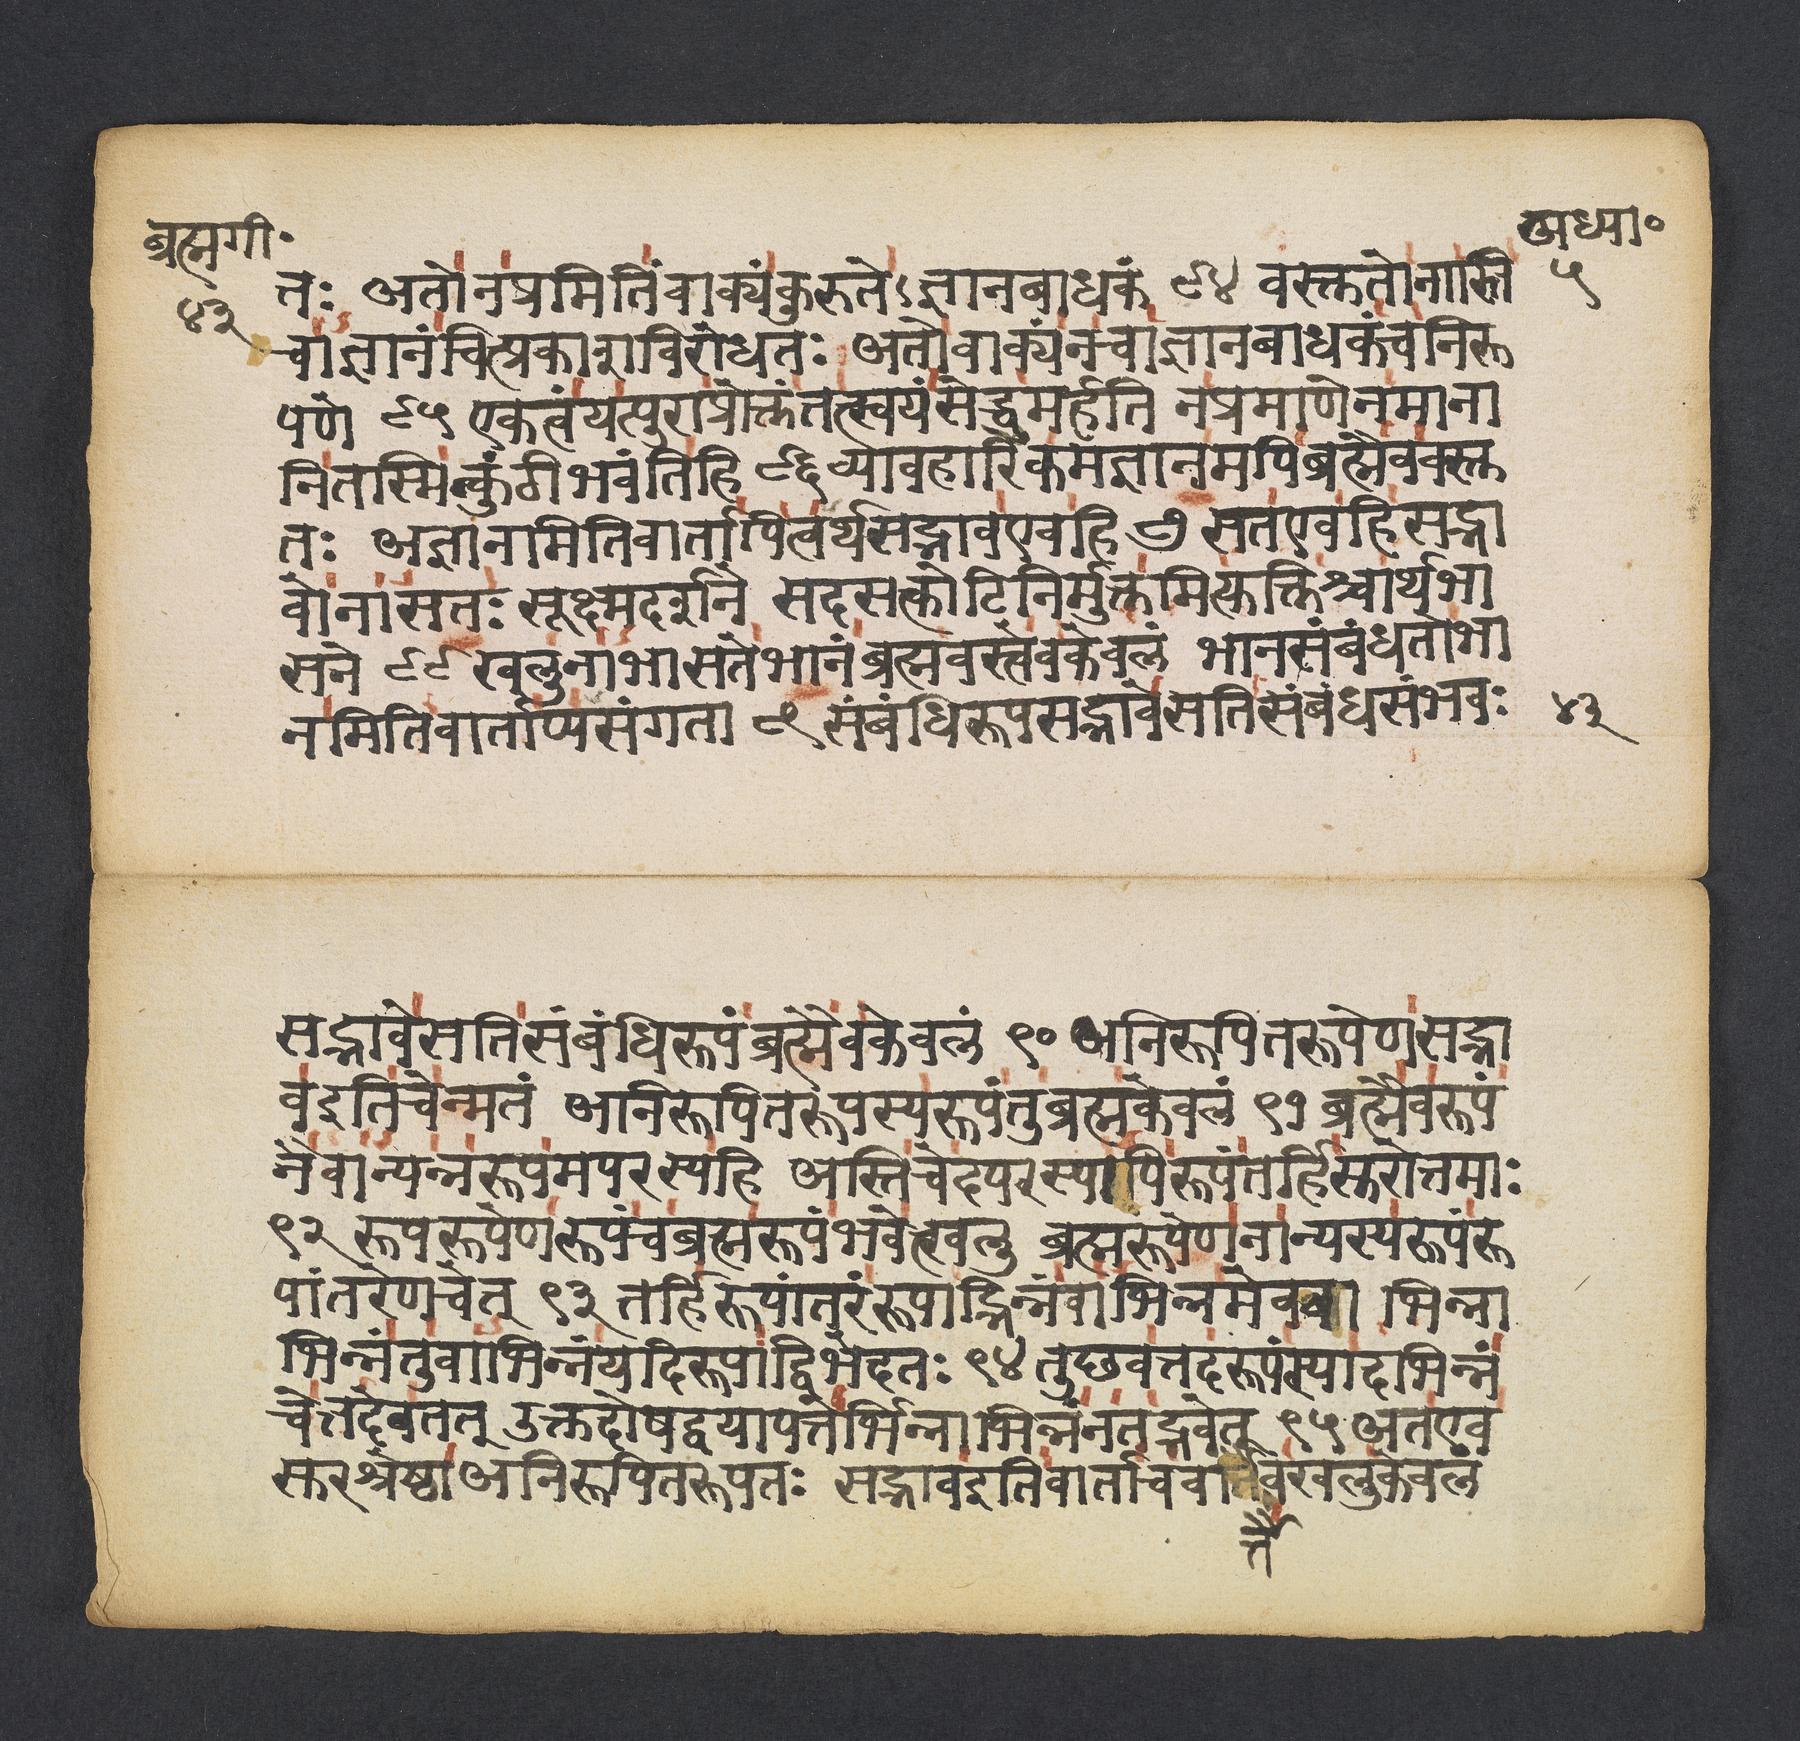 ब्रह्मगी॰
४३
अध्या॰
५
तः अतोनप्रमितिंवाक्यंकुरुतेऽज्ञानबाधकं ८४ वस्तुतोनास्ति
चाज्ञानंचित्प्रकाशविरोधतः अतोवाक्यंनचाज्ञानबाधकंचनिरू
पणे ८५ एकत्वंयत्पुराप्रोक्तंतत्स्वयंसेद्धुमर्हति नप्रमाणेनमाना
नितास्मिन्कुंठीभवंतिहि ८६ व्यावहारिकमज्ञानमपिब्रह्मैववस्तु
तः अज्ञानामितिवार्तापित्वर्थसद्भावएवहि ८७ सतएवहिसद्भा
वोनासतः सूक्ष्मदर्शने सदसत्कोटिनिर्मुक्तमित्युक्तिश्चार्थभा
सने ८८ खलुनाभासतेभानंब्रह्मवस्त्वेवकेवलं भानसंबंधतोभा
नमितिवार्ताप्यसंगता ८९ संबंधिरूपसद्भावेसतिसंबंधसंभवः
४३
सद्भावेसतिसंबंधिरूपंब्रह्मैवकेवलं ९० अनिरूपितरूपेणसद्भा
वइतिचेन्मतं अनिरूपितरूपस्यरूपंतुब्रह्मकेवलं ९१ ब्रह्मैवरूपं
नैवान्यन्नरूपमपरस्यहि अस्तिचेदपरस्यापिरूपंतर्हिसुरोत्तमाः
९२ रूपरूपेणरूपंचब्रह्मरूपंभवेत्खलु ब्रह्मरूपेणनान्यस्यरूपंरू
पांतरेणचेत् ९३ तर्हिरूपांतरंरूपाद्भिन्नंवाभिन्नमेववा भिन्ना
भिन्नंतुवाभिन्नंयदिरूपाद्विभेदतः ९४ तुछवत्तदरूपंस्यादभिन्नं
चेत्तदेवतत् उक्तदोषद्वयापत्तेर्भिन्नाभिन्नंनतद्भवेत् ९५ अतएव
सुरश्रेष्ठाअनिरूपितरूपतः सद्भावइतिवार्ताचवार्तैवखलुकेवलं
र्तै